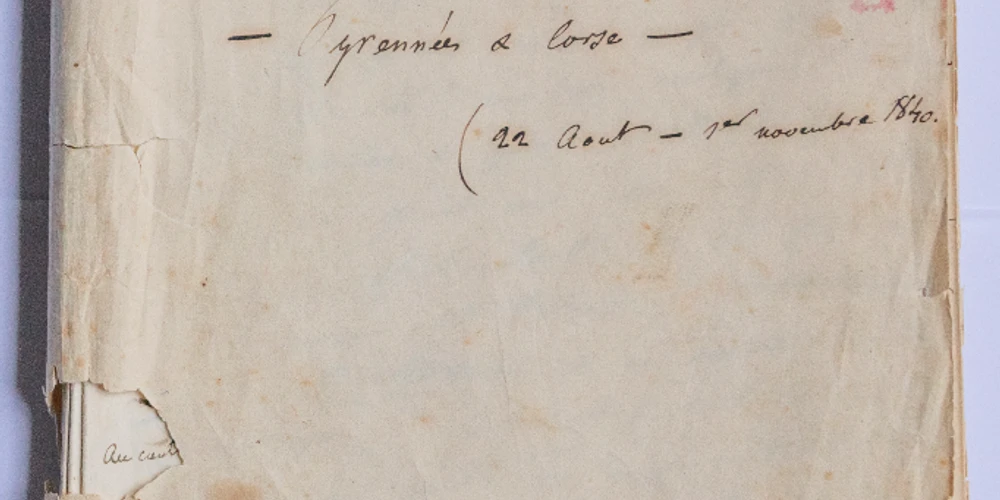 — Pyrennées & Corse —
(22 Aout — 1er novembre 1840.
Au